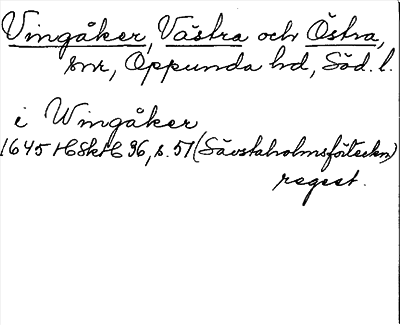 Vingåker, Västra och Östra,
snr, Oppunda hd, Söd. l.
i Wingåker
1645 HSkH 96, s. 57 (Sävstaholmsförteckn)
regest.